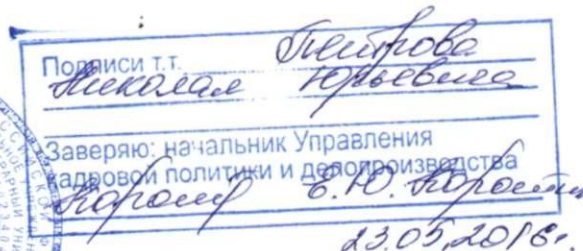 Подписи т.т. Петрова
Николая Юрьевича
Заверяю: начальник Управления
кадровой политики и делопроизводства
Е.Ю.
23.05.2016г.